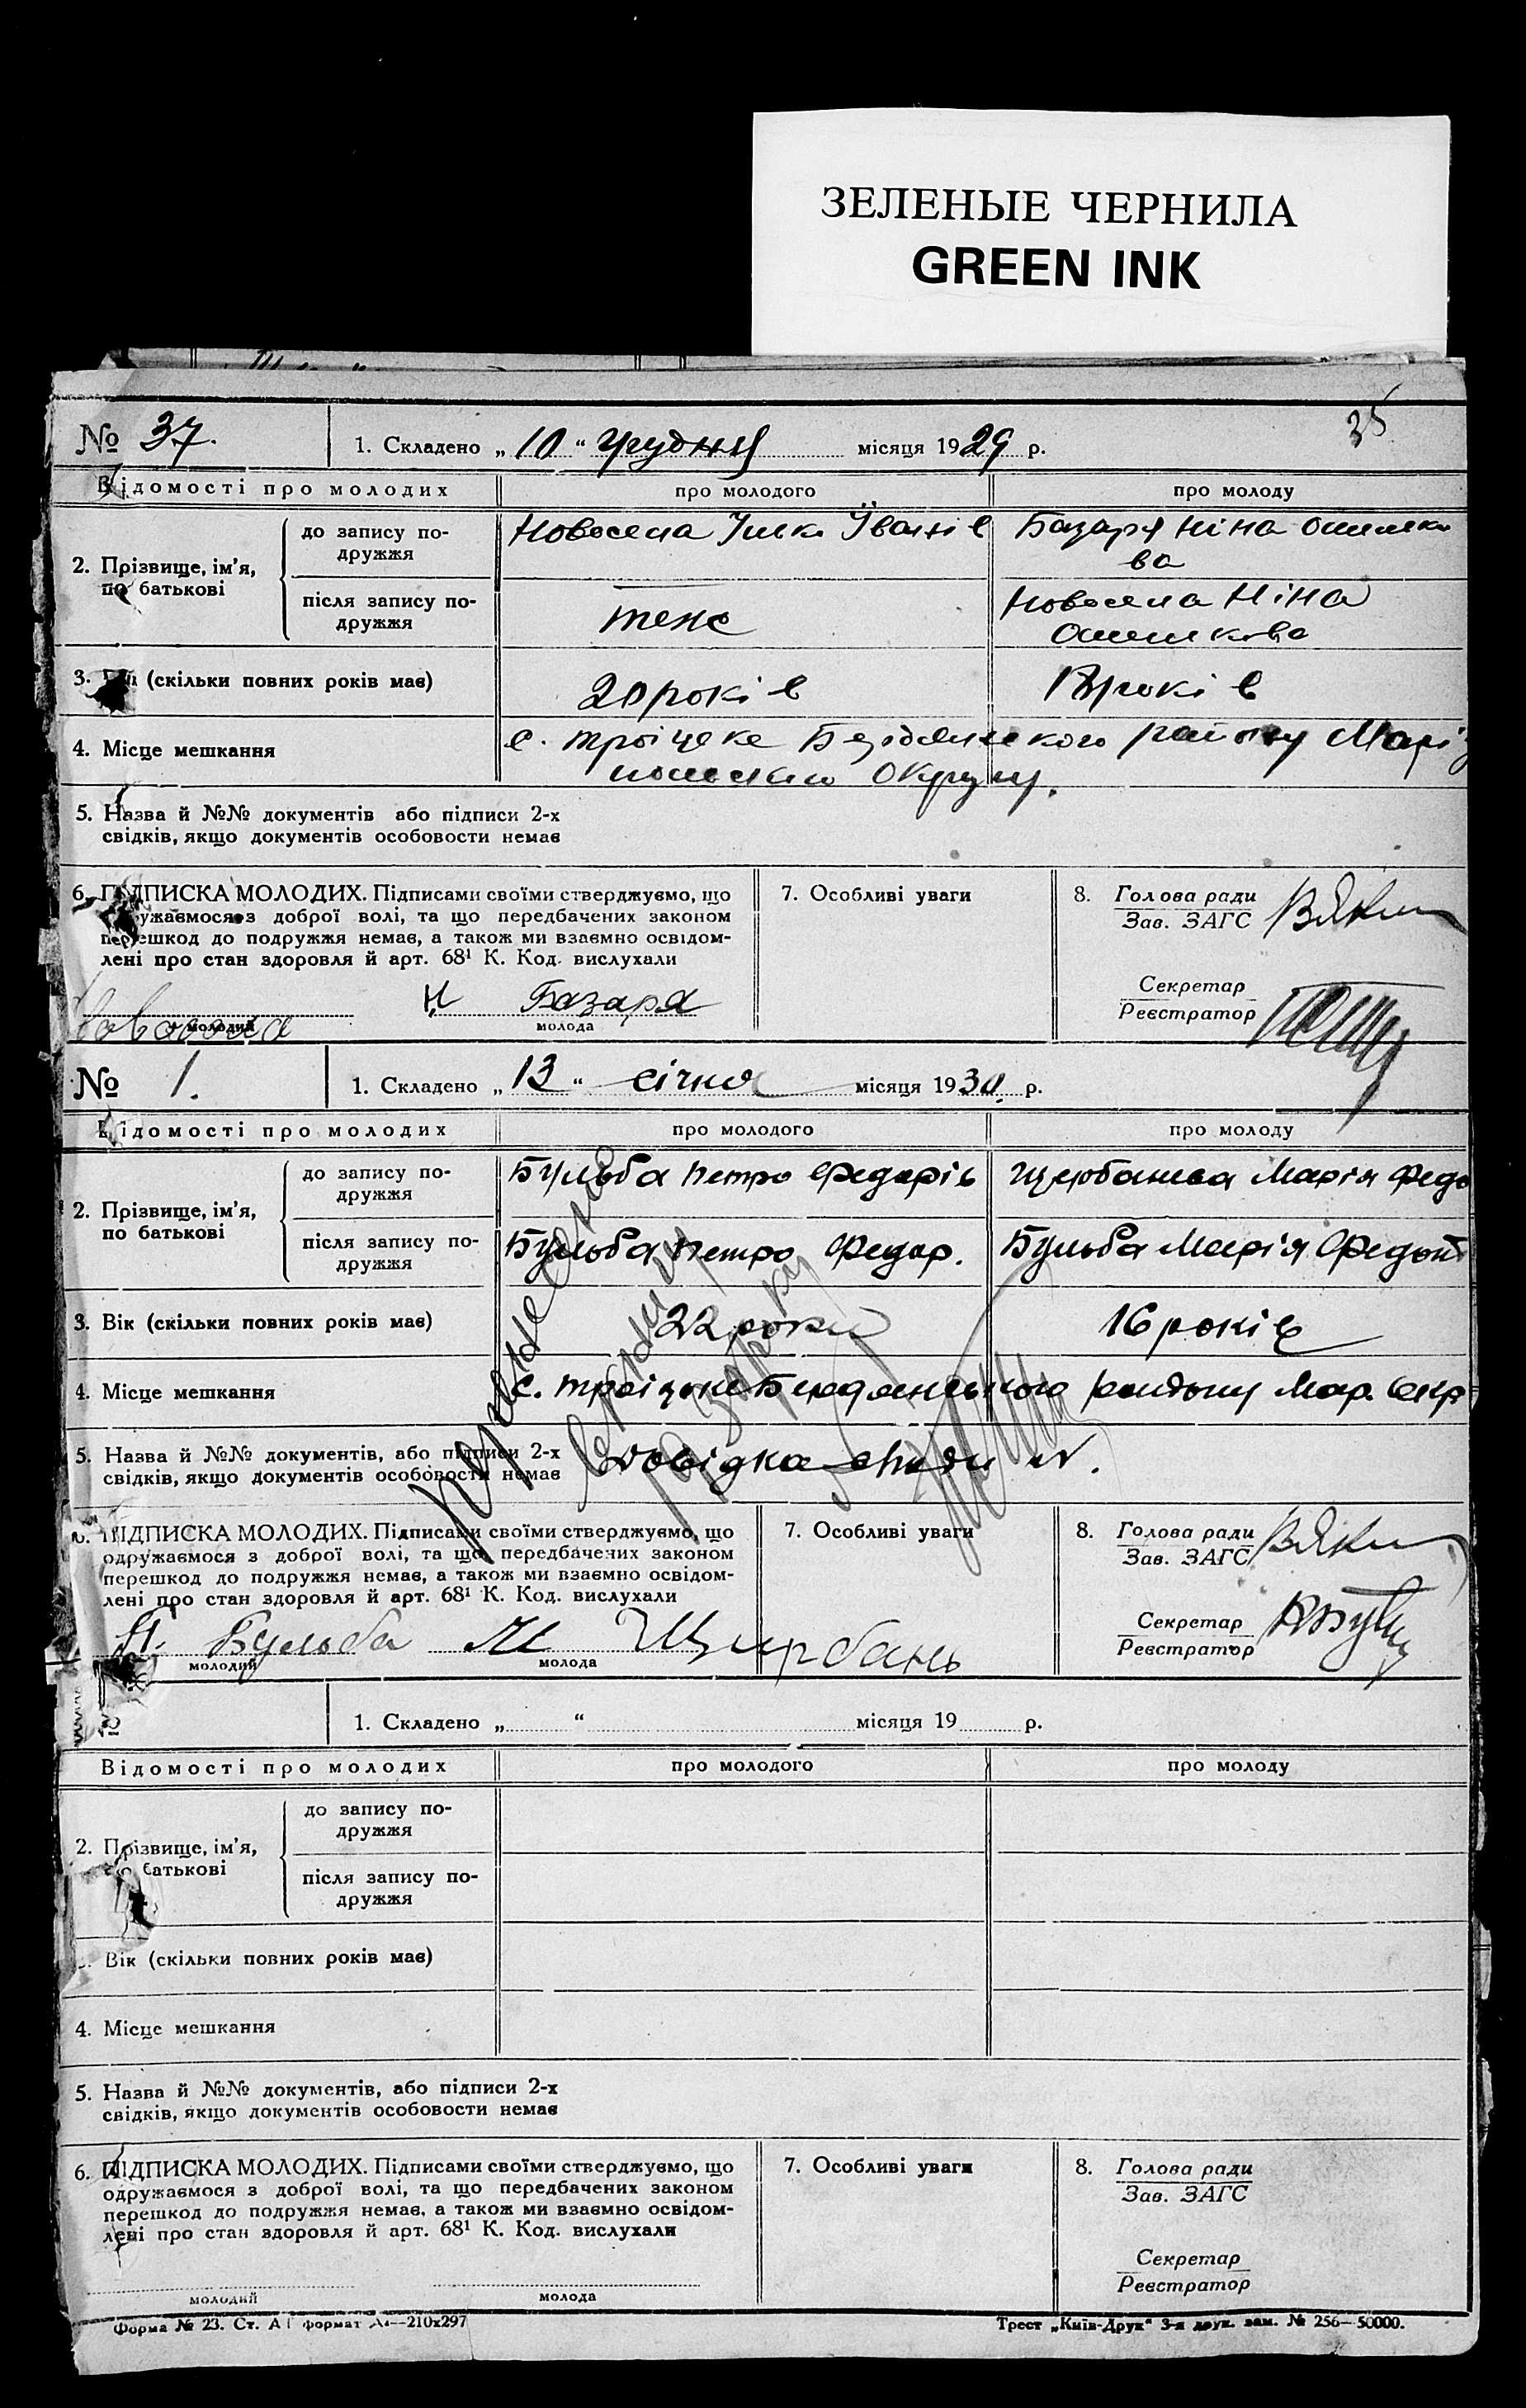 ЗЕЛЕНЫЕ ЧЕРНИЛА
GREEN INK
35
№ 37. 1. Складено „10“ грудня місяця 1929 р.
Відомості про молодих про молодого про молоду
2. Прізвище, ім’я, по батькові
до запису подружжя Новосела Ілько Іванів Базаря Ніна
ва
після запису подружжя теж Новосела Ніна
3. Вік (скільки повних років має) 20 років 18 років
4. Місце мешкання с. Троіцьке району Маріу
польської округи.
5. Назва й №№ документів або підписи 2-х
свідків, якщо документів особовости немає
6. ПІДПИСКА МОЛОДИХ. Підписами своїми стверджуємо, що
одружаємося з доброї волі, та що передбачених законом
перешкод до подружжя немає, а також ми взаємно освідом-
лені про стан здоровля й арт. 68¹ К. Код. вислухали
Н Базаря
молодий молода
7. Особливі уваги
8. Голова ради
Зав. ЗАГС
Секретар
Реєстратор
№ 1. 1. Складено „13“ січня місяця 1930. р.
Відомості про молодих про молодого про молоду
2. Прізвище, ім’я, по батькові
до запису подружжя Бульба Петро Федорів Щербаньва Марія Федо
після запису подружжя Бульба Петро Федор. Бульба Марія
3. Вік (скільки повних років має) 22 роки 16 років
4. Місце мешкання с. Троіцьке Бердянського району Мар. окр
5. Назва й №№ документів, або підписи 2-х
свідків, якщо документів особовости немає
Довідка
6. ПІДПИСКА МОЛОДИХ. Підписами своїми стверджуємо, що
одружаємося з доброї волі, та що передбачених законом
перешкод до подружжя немає, а також ми взаємно освідом-
лені про стан здоровля й арт. 68¹ К. Код. вислухали
П. Бульба М Щирбань
молодий молода
7. Особливі уваги
8. Голова ради
Зав. ЗАГС
Секретар
Реєстратор
№ 1. Складено „ “ місяця 19 р.
Відомості про молодих про молодого про молоду
2. Прізвище, ім’я, по батькові
до запису подружжя
після запису подружжя
3. Вік (скільки повних років має)
4. Місце мешкання
5. Назва й №№ документів, або підписи 2-х
свідків, якщо документів особовости немає
6. ПІДПИСКА МОЛОДИХ. Підписами своїми стверджуємо, що
одружаємося з доброї волі, та що передбачених законом
перешкод до подружжя немає, а також ми взаємно освідом-
лені про стан здоровля й арт. 68¹ К. Код. вислухали
молодий молода
7. Особливі уваги
8. Голова ради
Зав. ЗАГС
Секретар
Реєстратор
Форма № 23. Ст. А формат А₄—210х297
Трест „Київ-Друк“ 3-я друк. зам. № 256—50000.